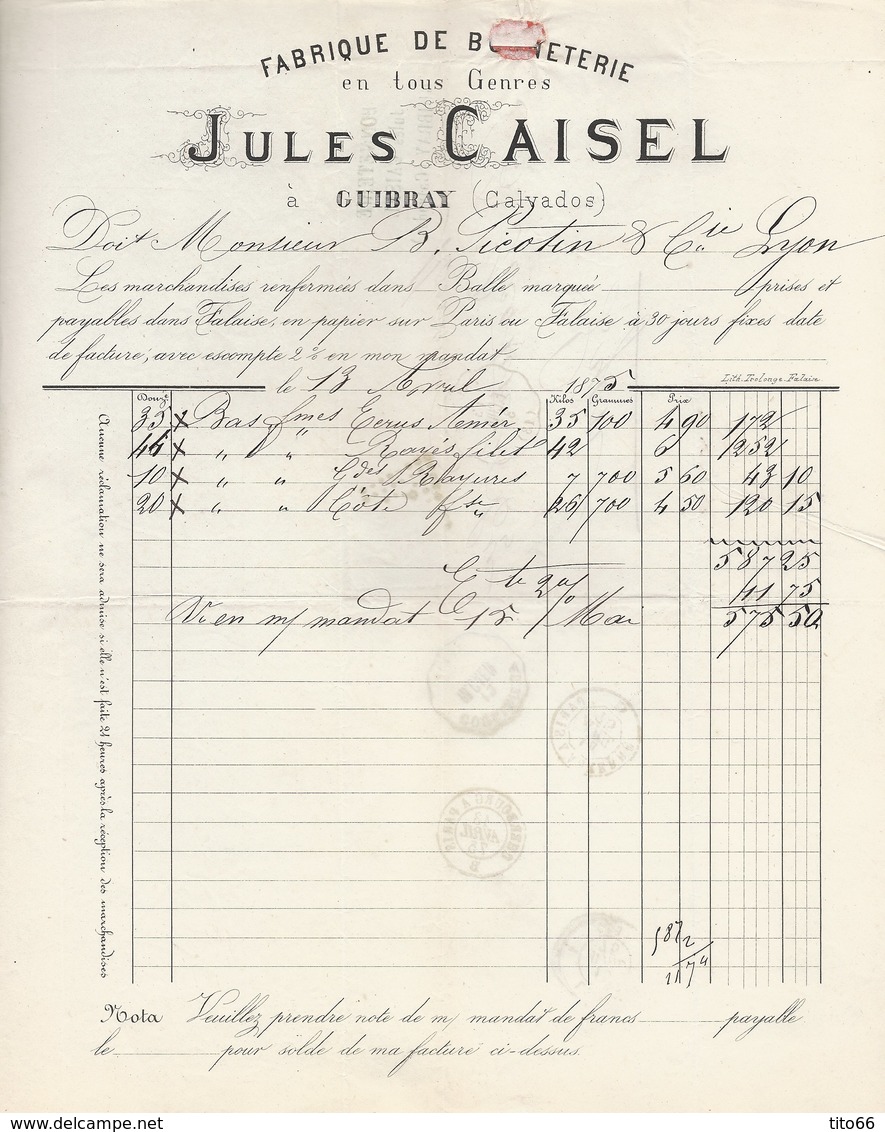 FABRIQUE DE BONNETERIE
en tous Genres
JULES CAISEL
à GUIBRAY (Calvados)
Doit Monsieur B. Picotin & Cie Lyon
Les marchandises renfermées dans Balle marquée prises et
payables dans Falaise, en papier sur Paris ou Falaise à 30 jours fixes date
de facture, avec escompte 2% en mon mandat
le 13 Avril 1875
Lith. Trolonge Falaise
Douz. Kilos Grammes Prix
35 x Bas fmes Ecrus 35 100 4 90 172
44 x " " Rayés filet 42 6 252
10 x " " Gdes Rayures 7 700 5 60 43 10
20 x " " Côte 26 700 4 50 120 15
587 25
Ete 2% 11 75
Vr en m/ mandat 15 Mai 575 50
Aucune réclamation ne sera admise si elle n'est faite 24 heures après la réception des marchandises
CHERBOURG A PARIS
587
2
117 4
Nota Veuillez prendre note de m/ mandat de francs payable
le pour solde de ma facture ci-dessus.
www.delcampe.net
tito66